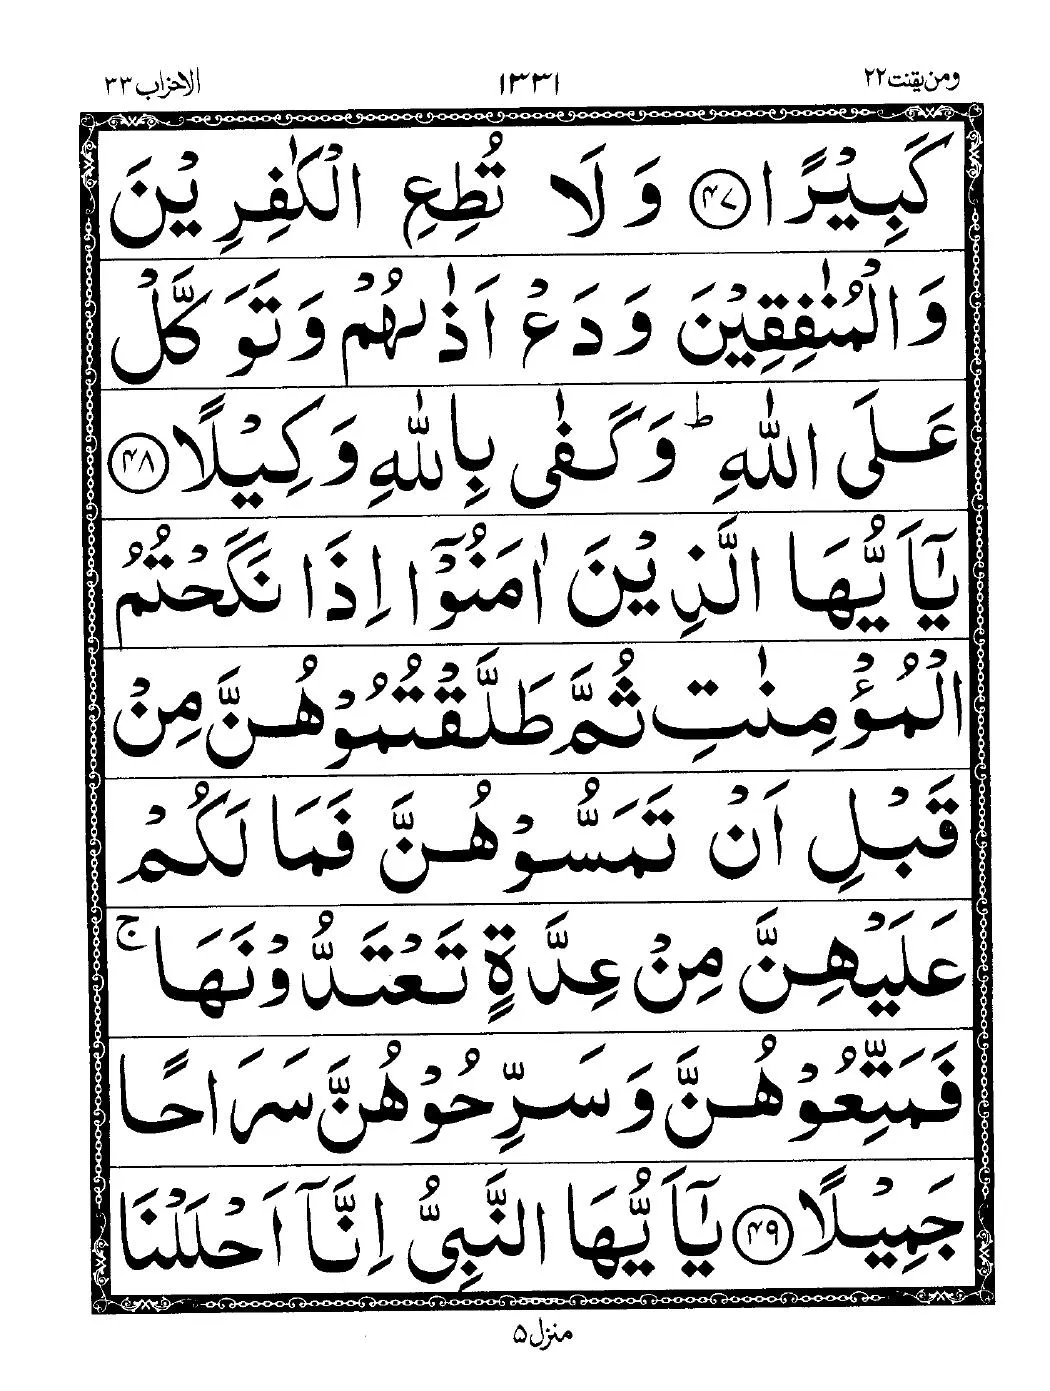 الاحزاب ۳۳ ۱۳۳۱ ومن يقنت ۲۲
كَبِيْرًا ۴۷ وَلَا تُطِعِ الْكٰفِرِيْنَ
وَالْمُنٰفِقِيْنَ وَدَعْ اَذٰىهُمْ وَتَوَكَّلْ
عَلَى اللّٰهِ ؕ وَكَفٰى بِاللّٰهِ وَكِيْلًا ۴۸
يٰۤاَيُّهَا الَّذِيْنَ اٰمَنُوْۤا اِذَا نَكَحْتُمُ
الْمُؤْمِنٰتِ ثُمَّ طَلَّقْتُمُوْهُنَّ مِنْ
قَبْلِ اَنْ تَمَسُّوْهُنَّ فَمَا لَكُمْ
عَلَيْهِنَّ مِنْ عِدَّةٍ تَعْتَدُّوْنَهَا ۚ
فَمَتِّعُوْهُنَّ وَسَرِّحُوْهُنَّ سَرَاحًا
جَمِيْلًا ۴۹ يٰۤاَيُّهَا النَّبِىُّ اِنَّاۤ اَحْلَلْنَا
منزل ۵